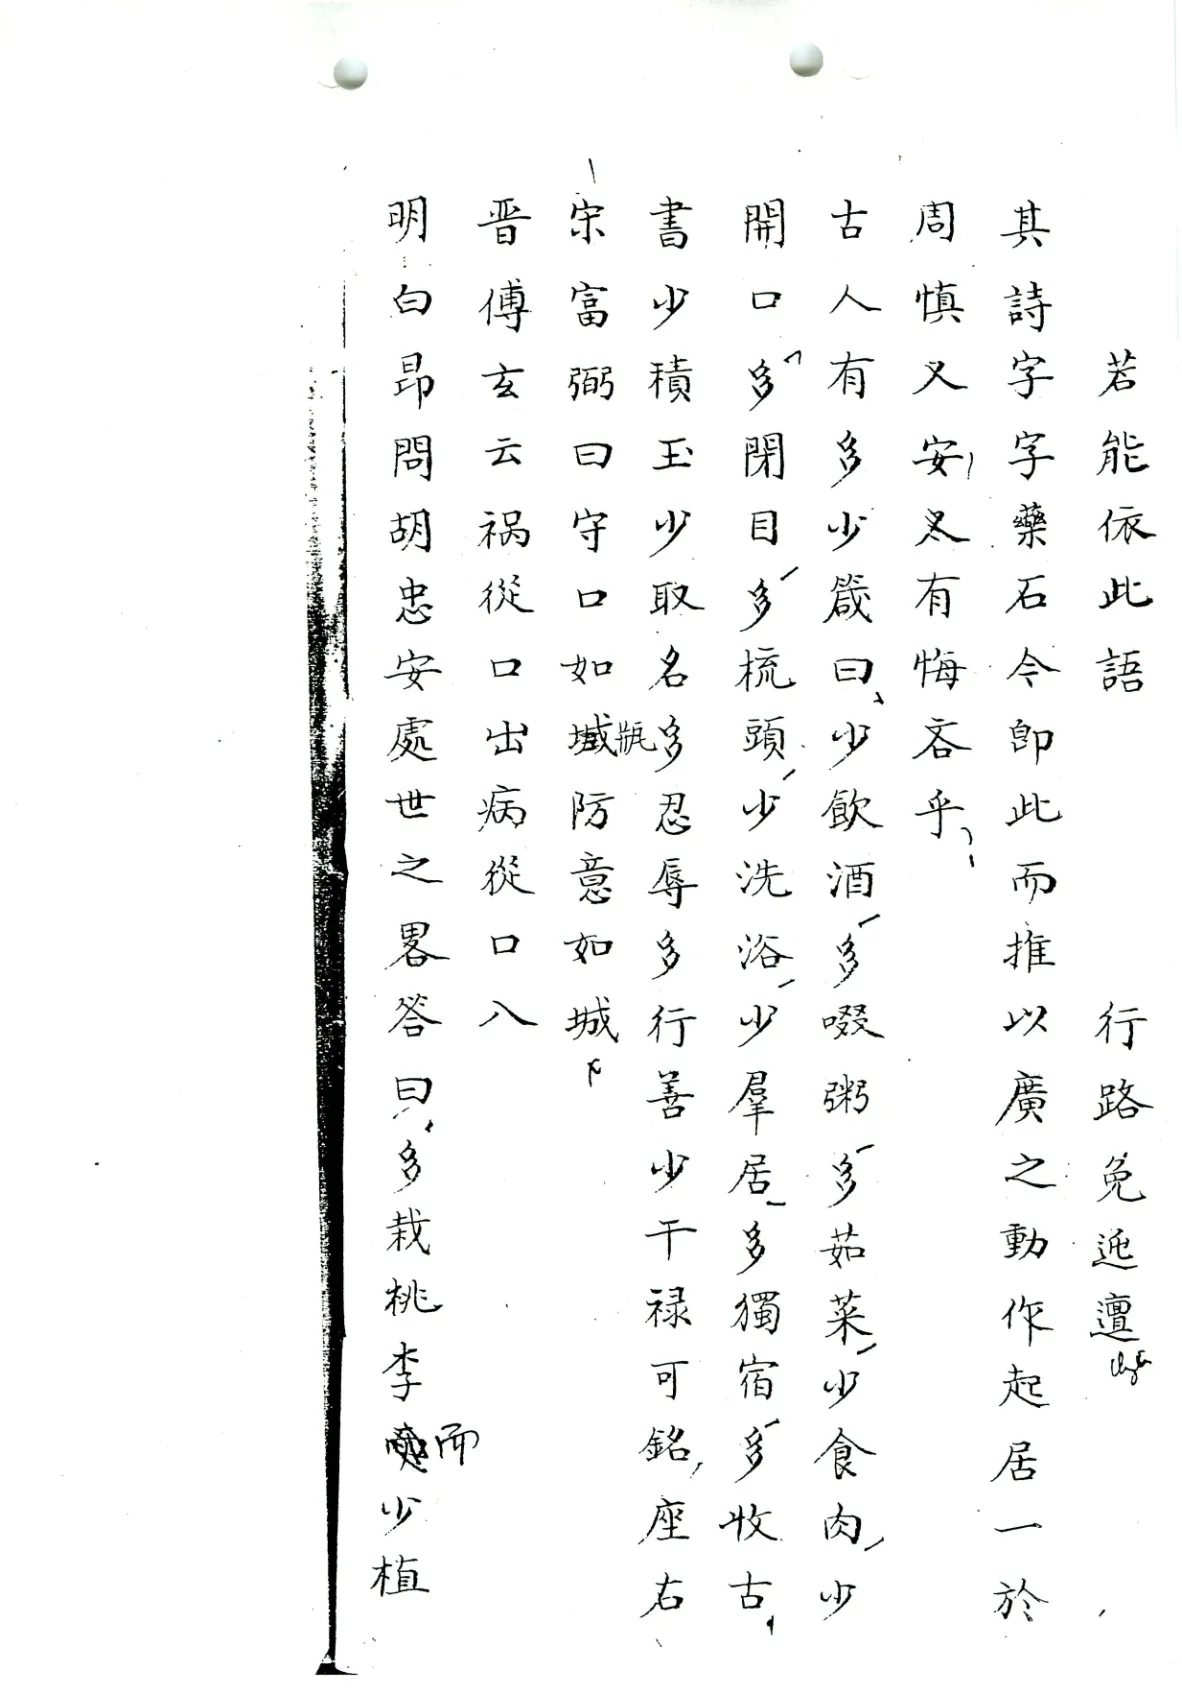 若能依此語　行路免迍邅
其詩字字藥石今即此而推以廣之動作起居一於
周慎又安又有悔吝乎
古人有多少箴曰少飲酒多啜粥多茹菜少食肉少
開口多閉目多梳頭少洗浴少羣居多獨宿多收古
書少積玉少取名多忍辱多行善少干禄可銘座右
宋富弼曰守口如瓶防意如城
晋傅玄云祸從口出病從口入
明白昂問胡忠安處世之畧答曰多栽桃李而少植